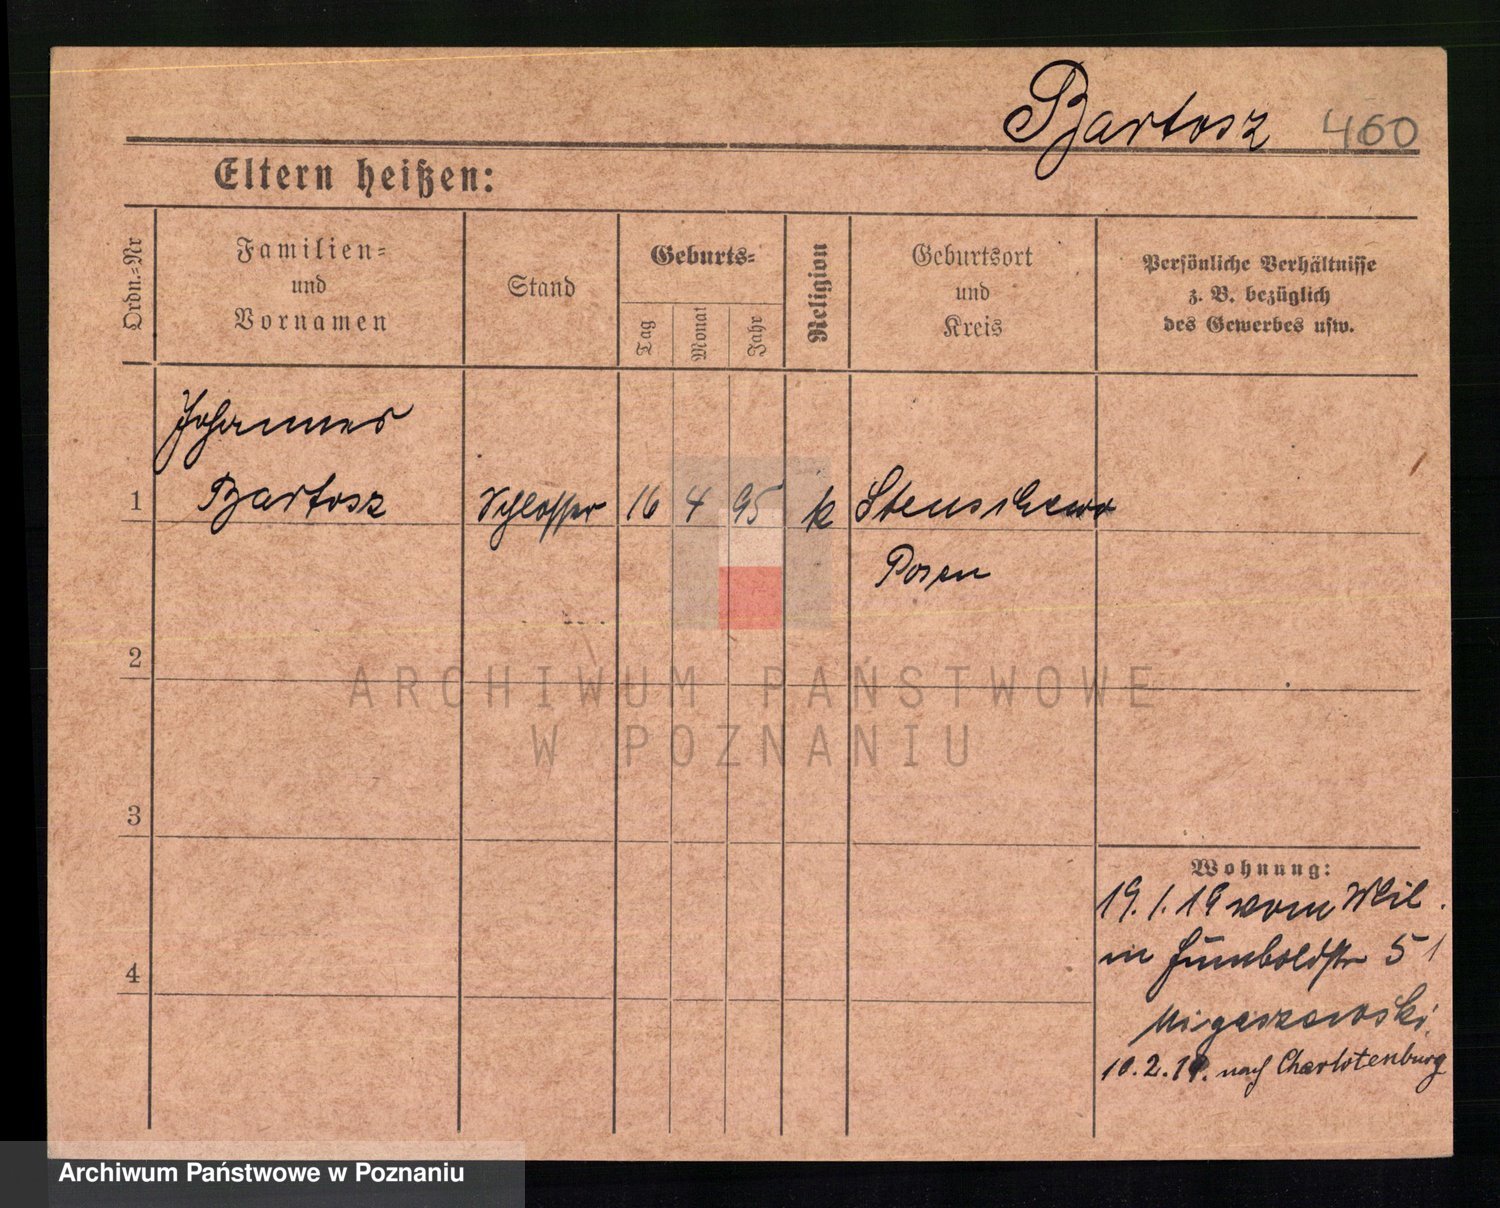 Bartosz 460
Eltern heißen:
Ordn.=Nr
Familien=
und
Vornamen
Stand
Geburts=
Tag
Monat
Jahr
Religion
Geburtsort
und
Kreis
Persönliche Verhältnisse
z. B. bezüglich
des Gewerbes usw.
Johannes
1 Bartosz Schlosser 16 4 95 k Stenschewo
Posen
2
ARCHIWUM PAŃSTWOWE
W POZNANIU
3
Wohnung:
19. 1. 19 vom Mil.
in Humboldstr 51
Migaszewski
4
10. 2. 19. nach Charlotenburg
Archiwum Państwowe w Poznaniu